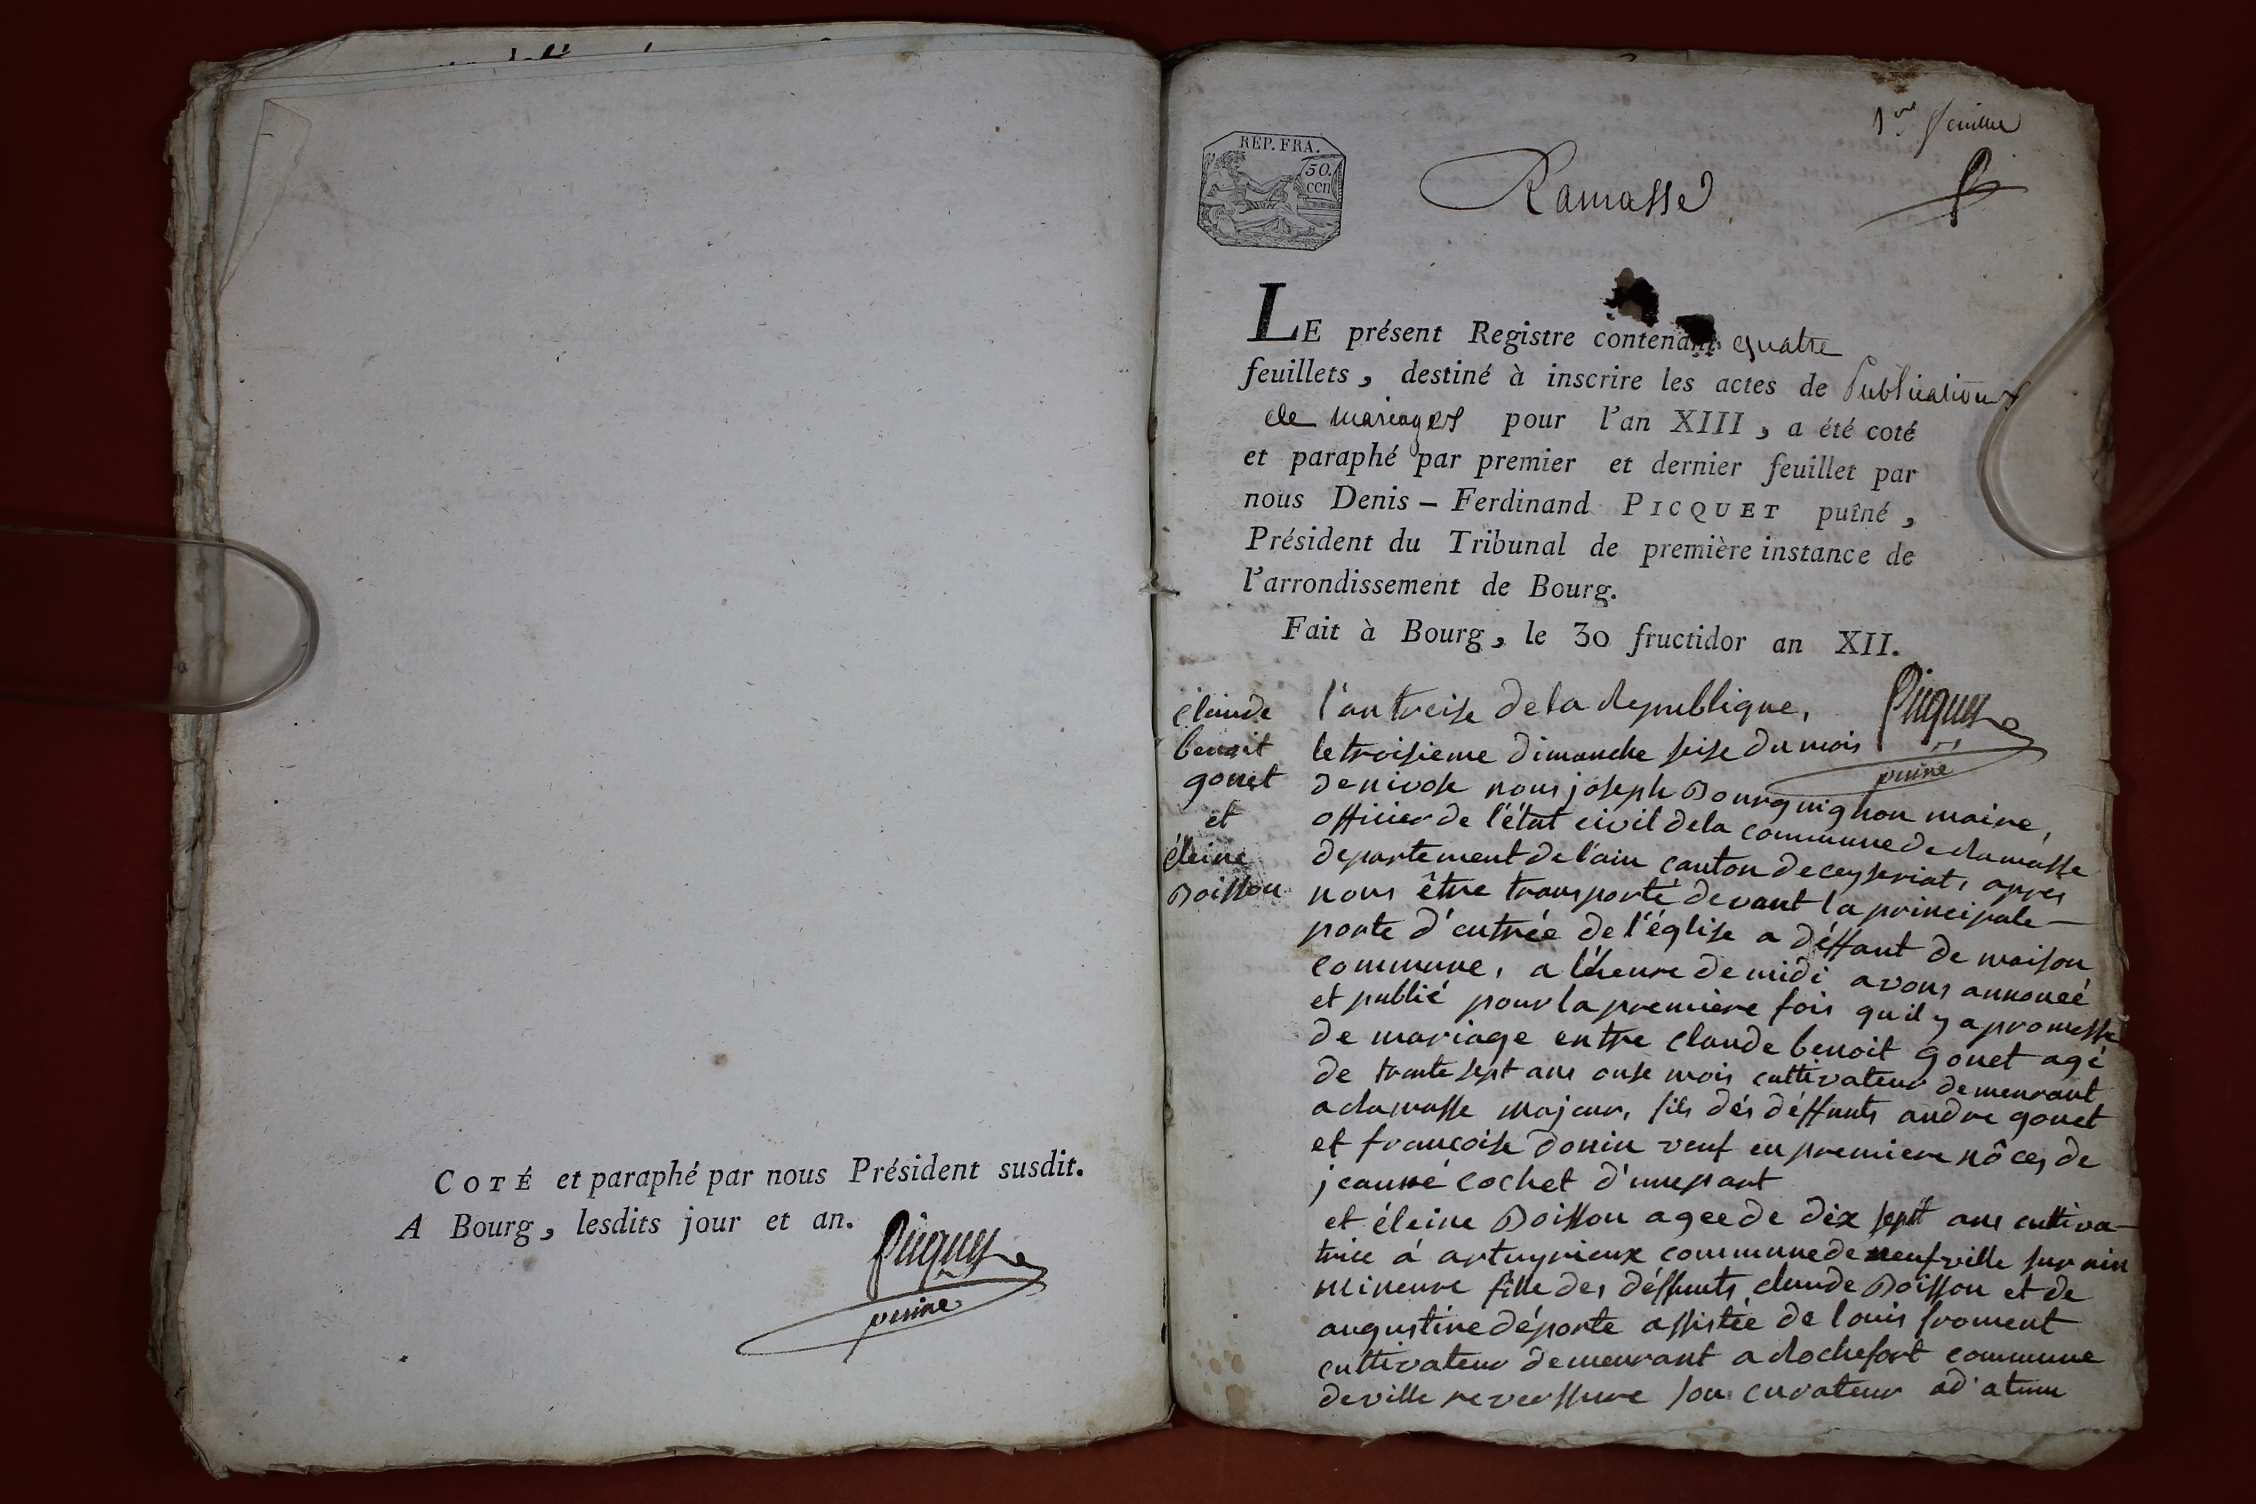 COTÉ et paraphé par nous Président susdit.
A Bourg, lesdits jour et an.
Picquet
puiné
1er feuillet
REP. FRA.
50.
cen
Ramasse
LE présent Registre contenant quatre
feuillets, destiné à inscrire les actes de Publications
de mariages pour l'an XIII, a été coté
et paraphé par premier et dernier feuillet par
nous Denis – Ferdinand PICQUET puîné,
Président du Tribunal de première instance de
l'arrondissement de Bourg.
Fait à Bourg, le 30 fructidor an XII.
Picquet
puiné
claude
benoit
gonet
et
éleine
Doisson
l'an treise de la Republique,
le troisieme dimanche seise du mois
de nivose nous joseph Bourguignon maire,
officier de l'état civil dela commune de Ramasse
departement de l'ain canton de ceyseriat, apres
nous être transporté devant la principale
porte d'entrée de l'église a déffaut de maison
commune, a l'heure de midi avons annoncé
et publié pour la premiere fois qu'il y a promesse
de mariage entre claude benoit gonet agé
de trante sept ans onse mois cultivateur demeurant
a Ramasse majeur, fils dés déffunts andre gonet
et francoise donin veuf en premiere nôces de
jeanne cochet d'une part
et éleine Doisson agee de dix sept ans cultiva-
trice á artuyrieux commune de neufville sur ain
mineure fille des déffunts claude Doisson et de
augustine déporte assistée de louis froment
cultivateur demeurant a Rochefort commune
de ville reversure son curateur ad